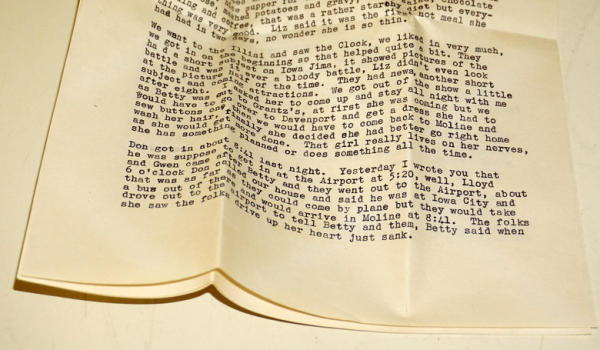 supper for
chocolate
mashed potatoes and gravy,
thing was very good. that was a rather starchy dish, but every-
had had in two days, Liz said it was the first hot meal she
no wonder she is so thin.
We want to the Illini and saw the Clock, we liked in very much,
we got in on the beginning so that helped quite a bit. They
had a short subject on Iowa Jima, it showed pictures of the
battle and was it ever a bloody battle, Liz didn't even look
at the picture half of the time. They had news, another short
subject and coming attractions. We got out of the show a little
after eight. I asked her to come up and stay all night with me
as Betty was up to Grantz's, at first she was coming but we
Would have to go over to Davenport and get a dress she had to
sew buttons on, then we would have to come back to Moline and
wash her hair, finally she decided she had better go right home
as she would get more done. That girl really lives on her nerves,
she has something planned or does something all the time.
Don got in about 8:41 last night. Yesterday I wrote you that
he was suppose to get in at the Airport at 5:20, well, Lloyd
and Gwen came after Betty and they went out to the Airport, about
6 o'clock Don called our house and said he was at Iowa City and
that was as far as they could come by plane but they would take
a bus out of there and would arrive in Moline at 8:41. The folks
drove out to the airport to tell Betty and them, Betty said when
she saw the folks drive up her heart just sank.